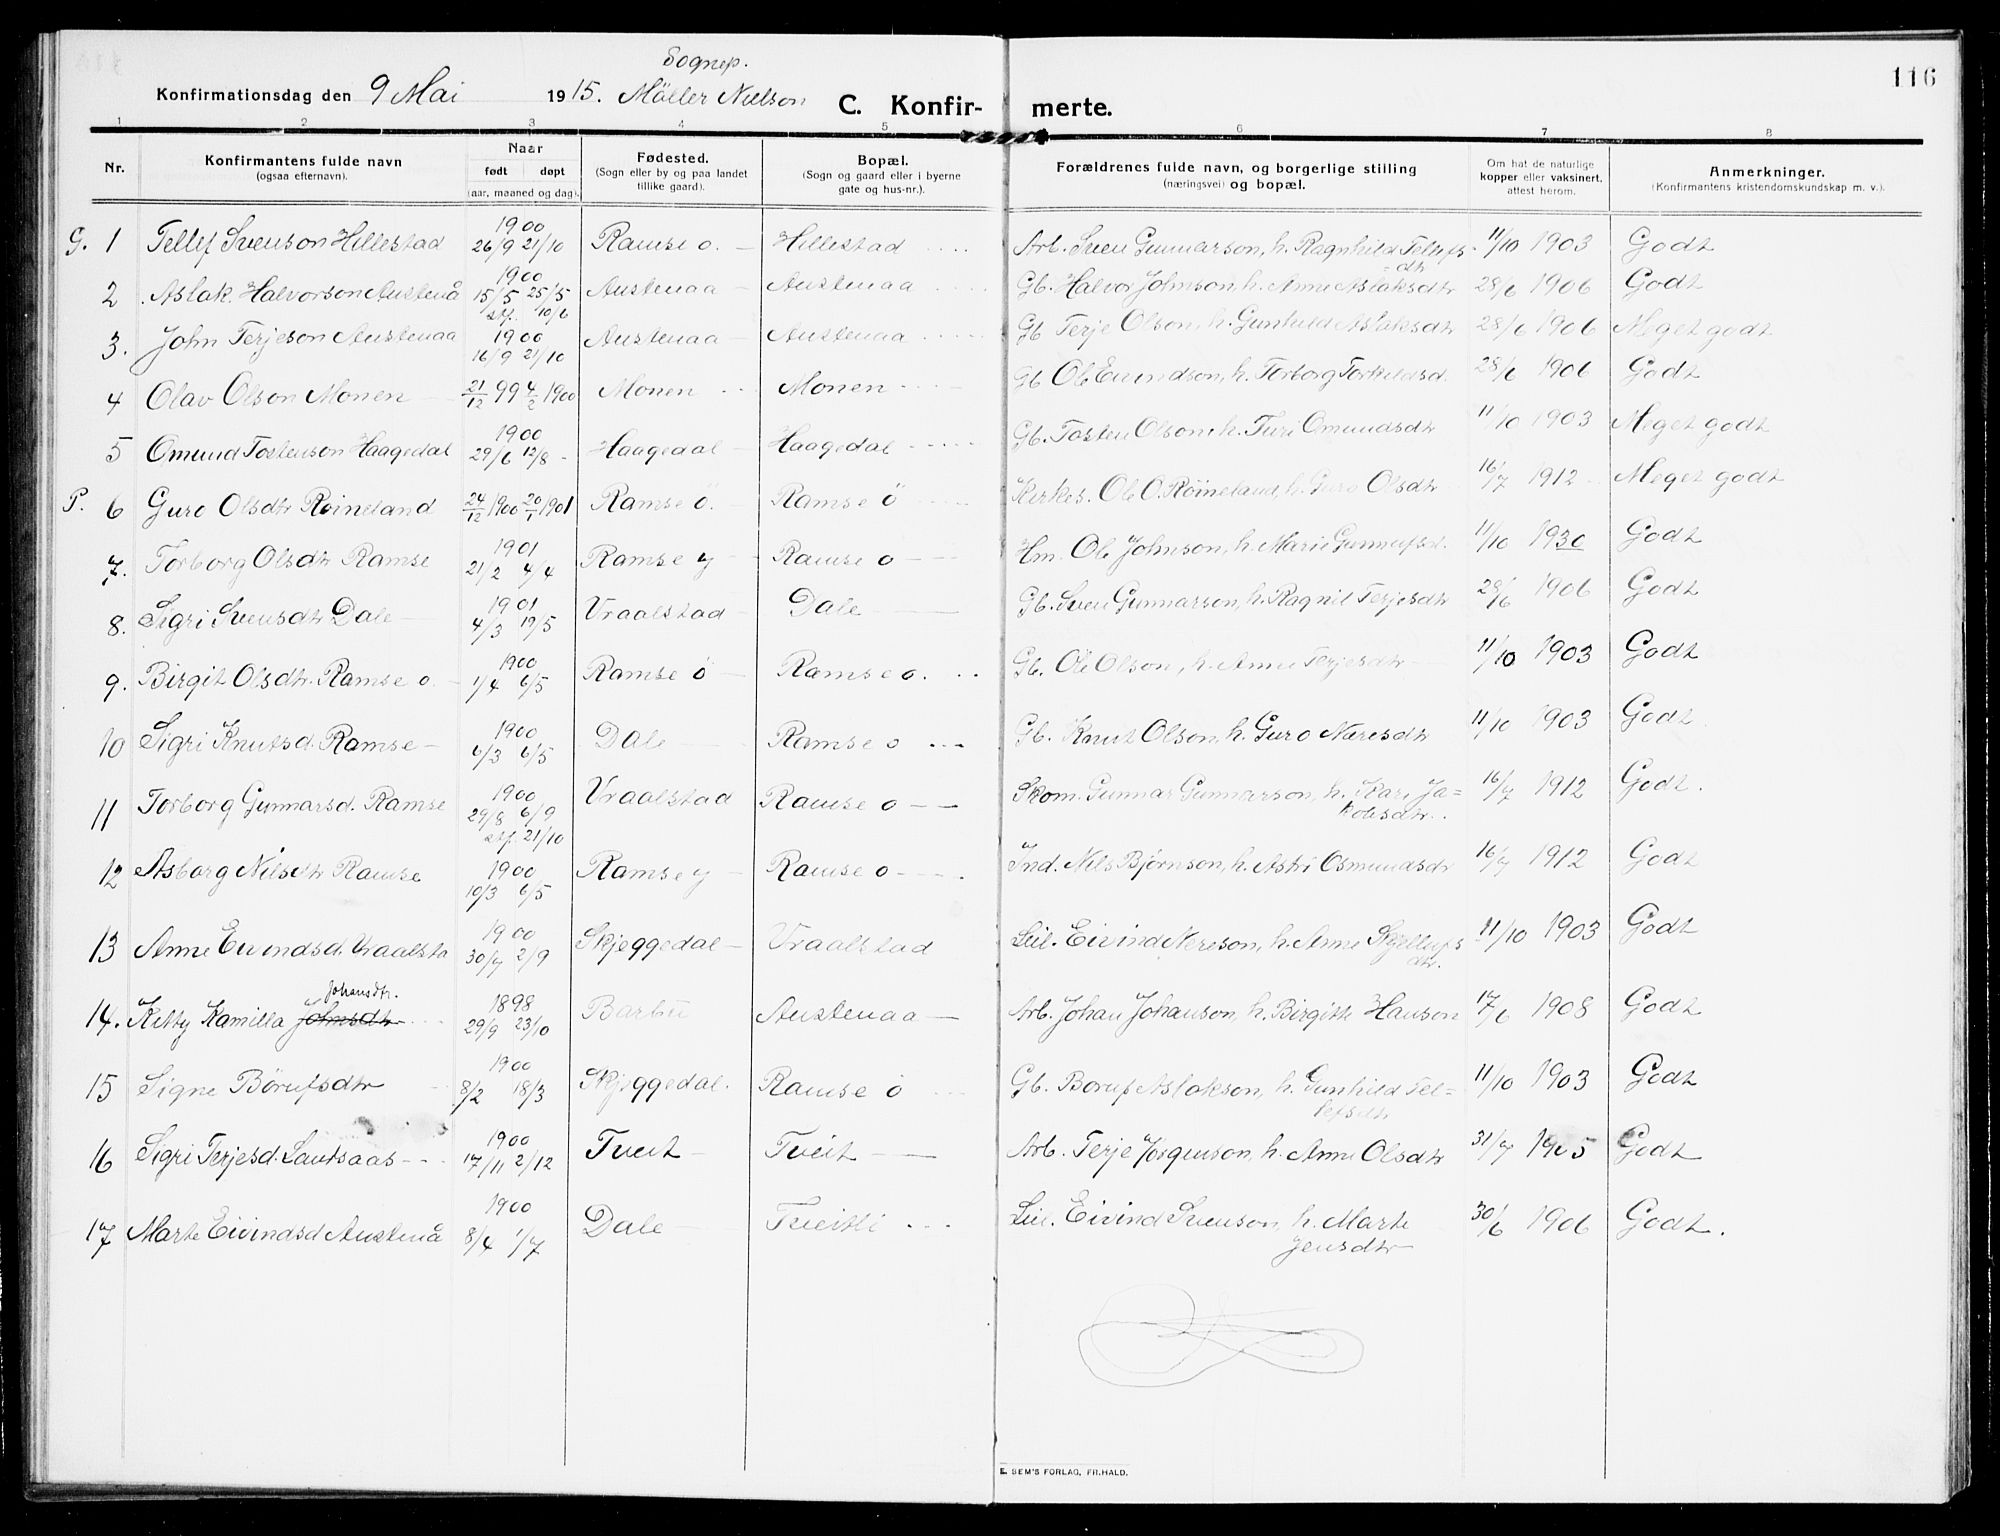 116
Sognep.
Konfirmationsdag den 9 Mai 1915. Møller Nielson C. Konfirmerte.
1 2 3 4 5 6 7 8
Nr. Konfirmantens fulde navn (ogsaa efternavn). Naar født døpt (aar, maaned og dag). Fødested. (Sogn eller by og paa landet tillike gaard). Bopæl. (Sogn og gaard eller i byerne gate og hus-nr.). Forældrenes fulde navn, og borgerlige stilling (næringsvei) og bopæl. Om hat de naturlige kopper eller vaksinert, attest herom. Anmerkninger. (Konfirmantens kristendomskundskap m. v.).
G. 1 Tellef Svenson Hillestad 1900 26/9 21/10 Ramse ø. Hillestad Arb. Sven Gunnarson, h. Ragnhild Tellefsdtr 11/10 1903 Godt
2 Aslak Halvorson Austenå 1900 15/5 25/5 stf. 10/6 Austenaa Austenaa Gb. Halvor Johnson h. Anne Aslaksdtr 28/6 1906 Godt
3. John Terjeson Austenaa 1900 16/9 21/10 Austenaa Austenaa Gb Terje Olson, h. Gunhild Aslaksdtr 28/6 1906 Meget godt
4 Olav Olson Monen 21/12 99 4/2 1900 Monen Monen Gb Ole Eivindson, h. Torborg Torkildsd. 28/6 1906 Godt
5 Omund Tostenson Haagedal 1900 29/6 12/8 Haagedal Haagedal Gb. Tosten Olson, h. Turi Omundsdtr 11/10 1903 Meget godt
P. 6 Guro Olsdtr Røineland 24/12 1900 20/1 1901 Ramse ö. Ramse ö Kirkes. Ole O. Røineland, h. Guro Olsdtr 16/7 1912 Meget godt
7. Torborg Olsdtr Ramse 1901 21/2 4/4 Ramse y Ramse ø Hm. Ole Johnson, h. Marie Gunnufsd. 11/10 1930 Godt
8. Sigri Svensdtr Dale 1901 4/3 19/5 Vraalstad Dale Gb. Sven Gunnarson, h. Ragnil Terjesdtr 28/6 1906 Godt
9. Birgit Olsdtr. Ramse ø. 1900 1/4 6/5 Ramse ö Ramse ø. Gb. Ole Olson, h. Anne Terjesdtr 11/10 1903 Godt
10 Sigri Knutsd. Ramse 1900 6/3 6/5 Dale Ramse ø Gb. Knut Olson, h. Guro Næresdtr 11/10 1903 Godt
11 Torborg Gunnarsd. Ramse 1900 29/8 6/9 stf. 21/10 Vraalstad Ramse ø Skom. Gunnar Gunnarson, h. Kari Jakobsdtr. 16/7 1912 Godt.
12 Asborg Nilsdtr Ramse 1900 10/3 6/5 Ramse y Ramse ø Ind. Nils Bjørnson, h. Astri Osmundsdtr 16/7 1912 Godt
13 Anne Eivindsd. Vraalsta 1900 30/7 2/9 Skjeggedal Vraalstad Leil. Eivind Nereson, h. Anne Skjellufsdtr. 11/10 1903 Godt
14. Kitty Kamilla Johnsdtr Johansdtr. 1898 29/9 23/10 Barbu Austenaa Arb. Johan Johanson, h. Birgitte Hanson 17/6 1908 Godt
15 Signe Börufsdtr 1900 8/2 18/3 Skjeggedal. Ramse ö Gb. Boruf Aslakson, h. Gunhild Tellefsdtr 11/10 1903 Godt
16 Sigri Terjesd. Lauvsaas 1900 17/11 2/12 Tveit Tveit Arb. Terje Jörgenson, h. Anne Olsdtr 31/7 1905 Godt
17 Marte Eivindsd Austenå 1900 8/4 1/7 Dale Tveitli Leil. Eivind Svenson, h. Marte Jensdtr 30/6 1906 Godt.
E. SEM'S FORLAG, FR.HALD.